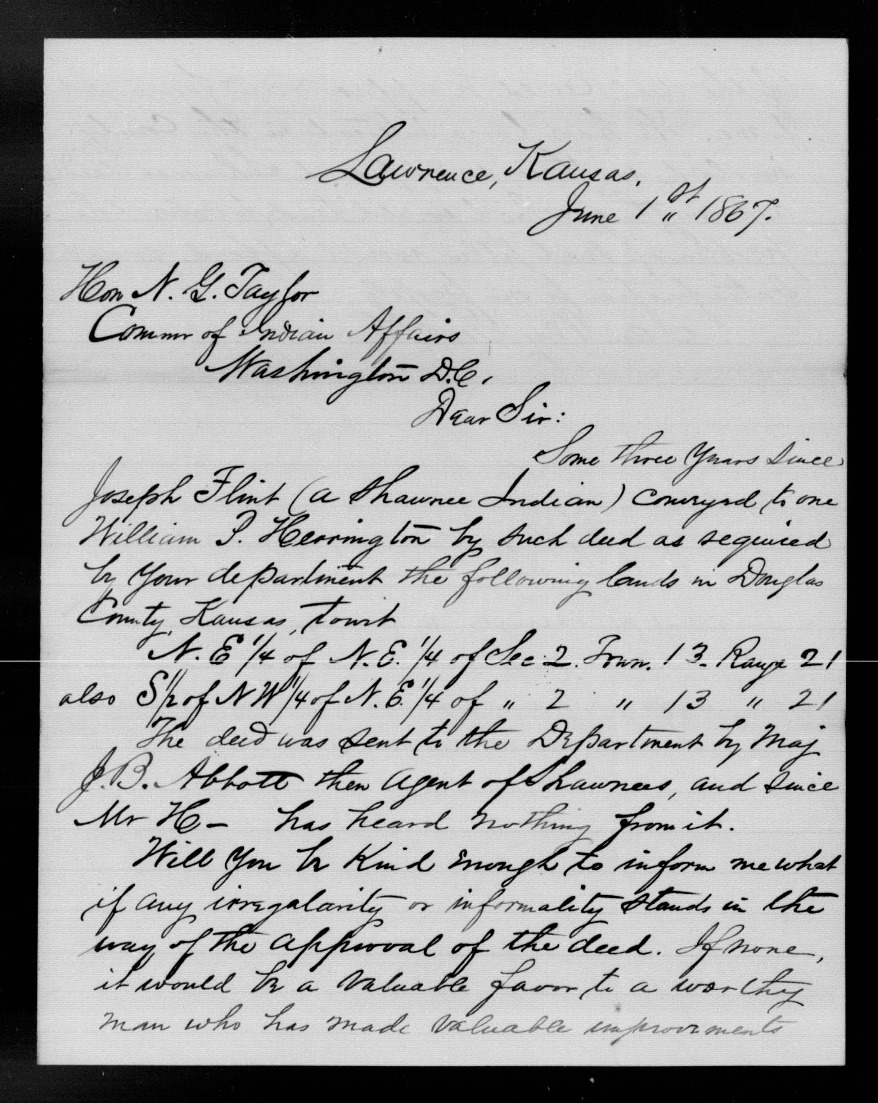 Lawrence, Kansas.
June 1st 1867.
Hon N. G. Taylor
Commr of Indian Affairs
Washington D.C.
Dear Sir:
Some three years since
Joseph Flint (a Shawnee Indian) conveyed to one
William P. Herrington by such deed as required
by your department the following lands in Douglas
County, Kansas, towit
N. E 1/4 of N. E. 1/4 of Sec 2. Town. 13. Range 21
also S 1/2 of N W 1/4 of N. E. 1/4 of " 2 " 13 " 21
The deed was sent to the Department by Maj
J. B. Abbott then agent of Shawnees, and since
Mr H— has heard nothing from it.
Will you be kind enough to inform me what
if any irregularity or informality stands in the
way of the approval of the deed. If none,
it would be a valuable favor to a worthy
man who has made valuable improvements